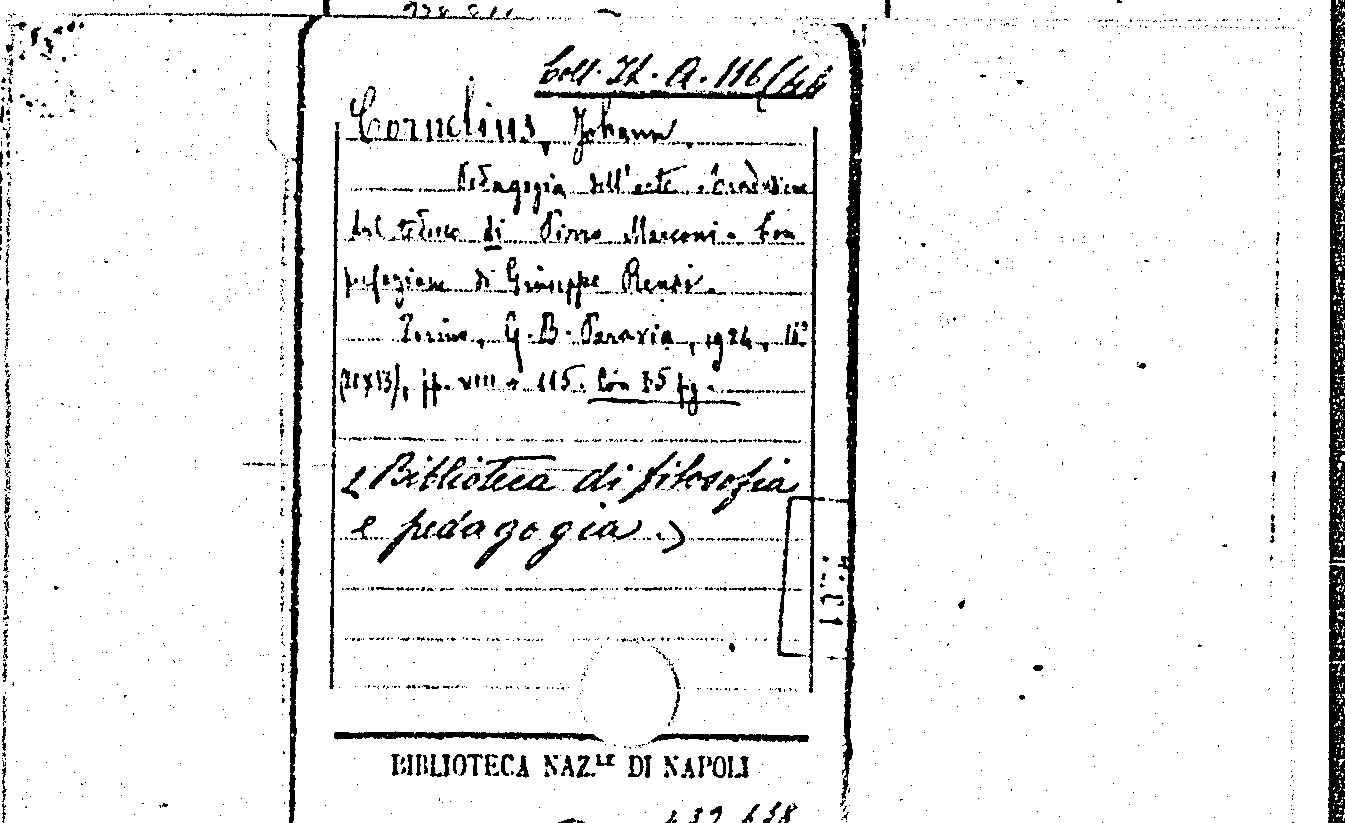 Coll. It. A. 116/44
Cornelius, Johann.
Pedagogia dell'arte. Traduzione
dal tedesco di Pirro Marconi. Con
prefazione di Giuseppe Rensi.
Torino, G. B. Paravia, 1924, 16º
(20x13), pp. VIII + 115. Con 35 fig.
(Biblioteca di filosofia
e pedagogia.)
BIBLIOTECA NAZ.LE DI NAPOLI